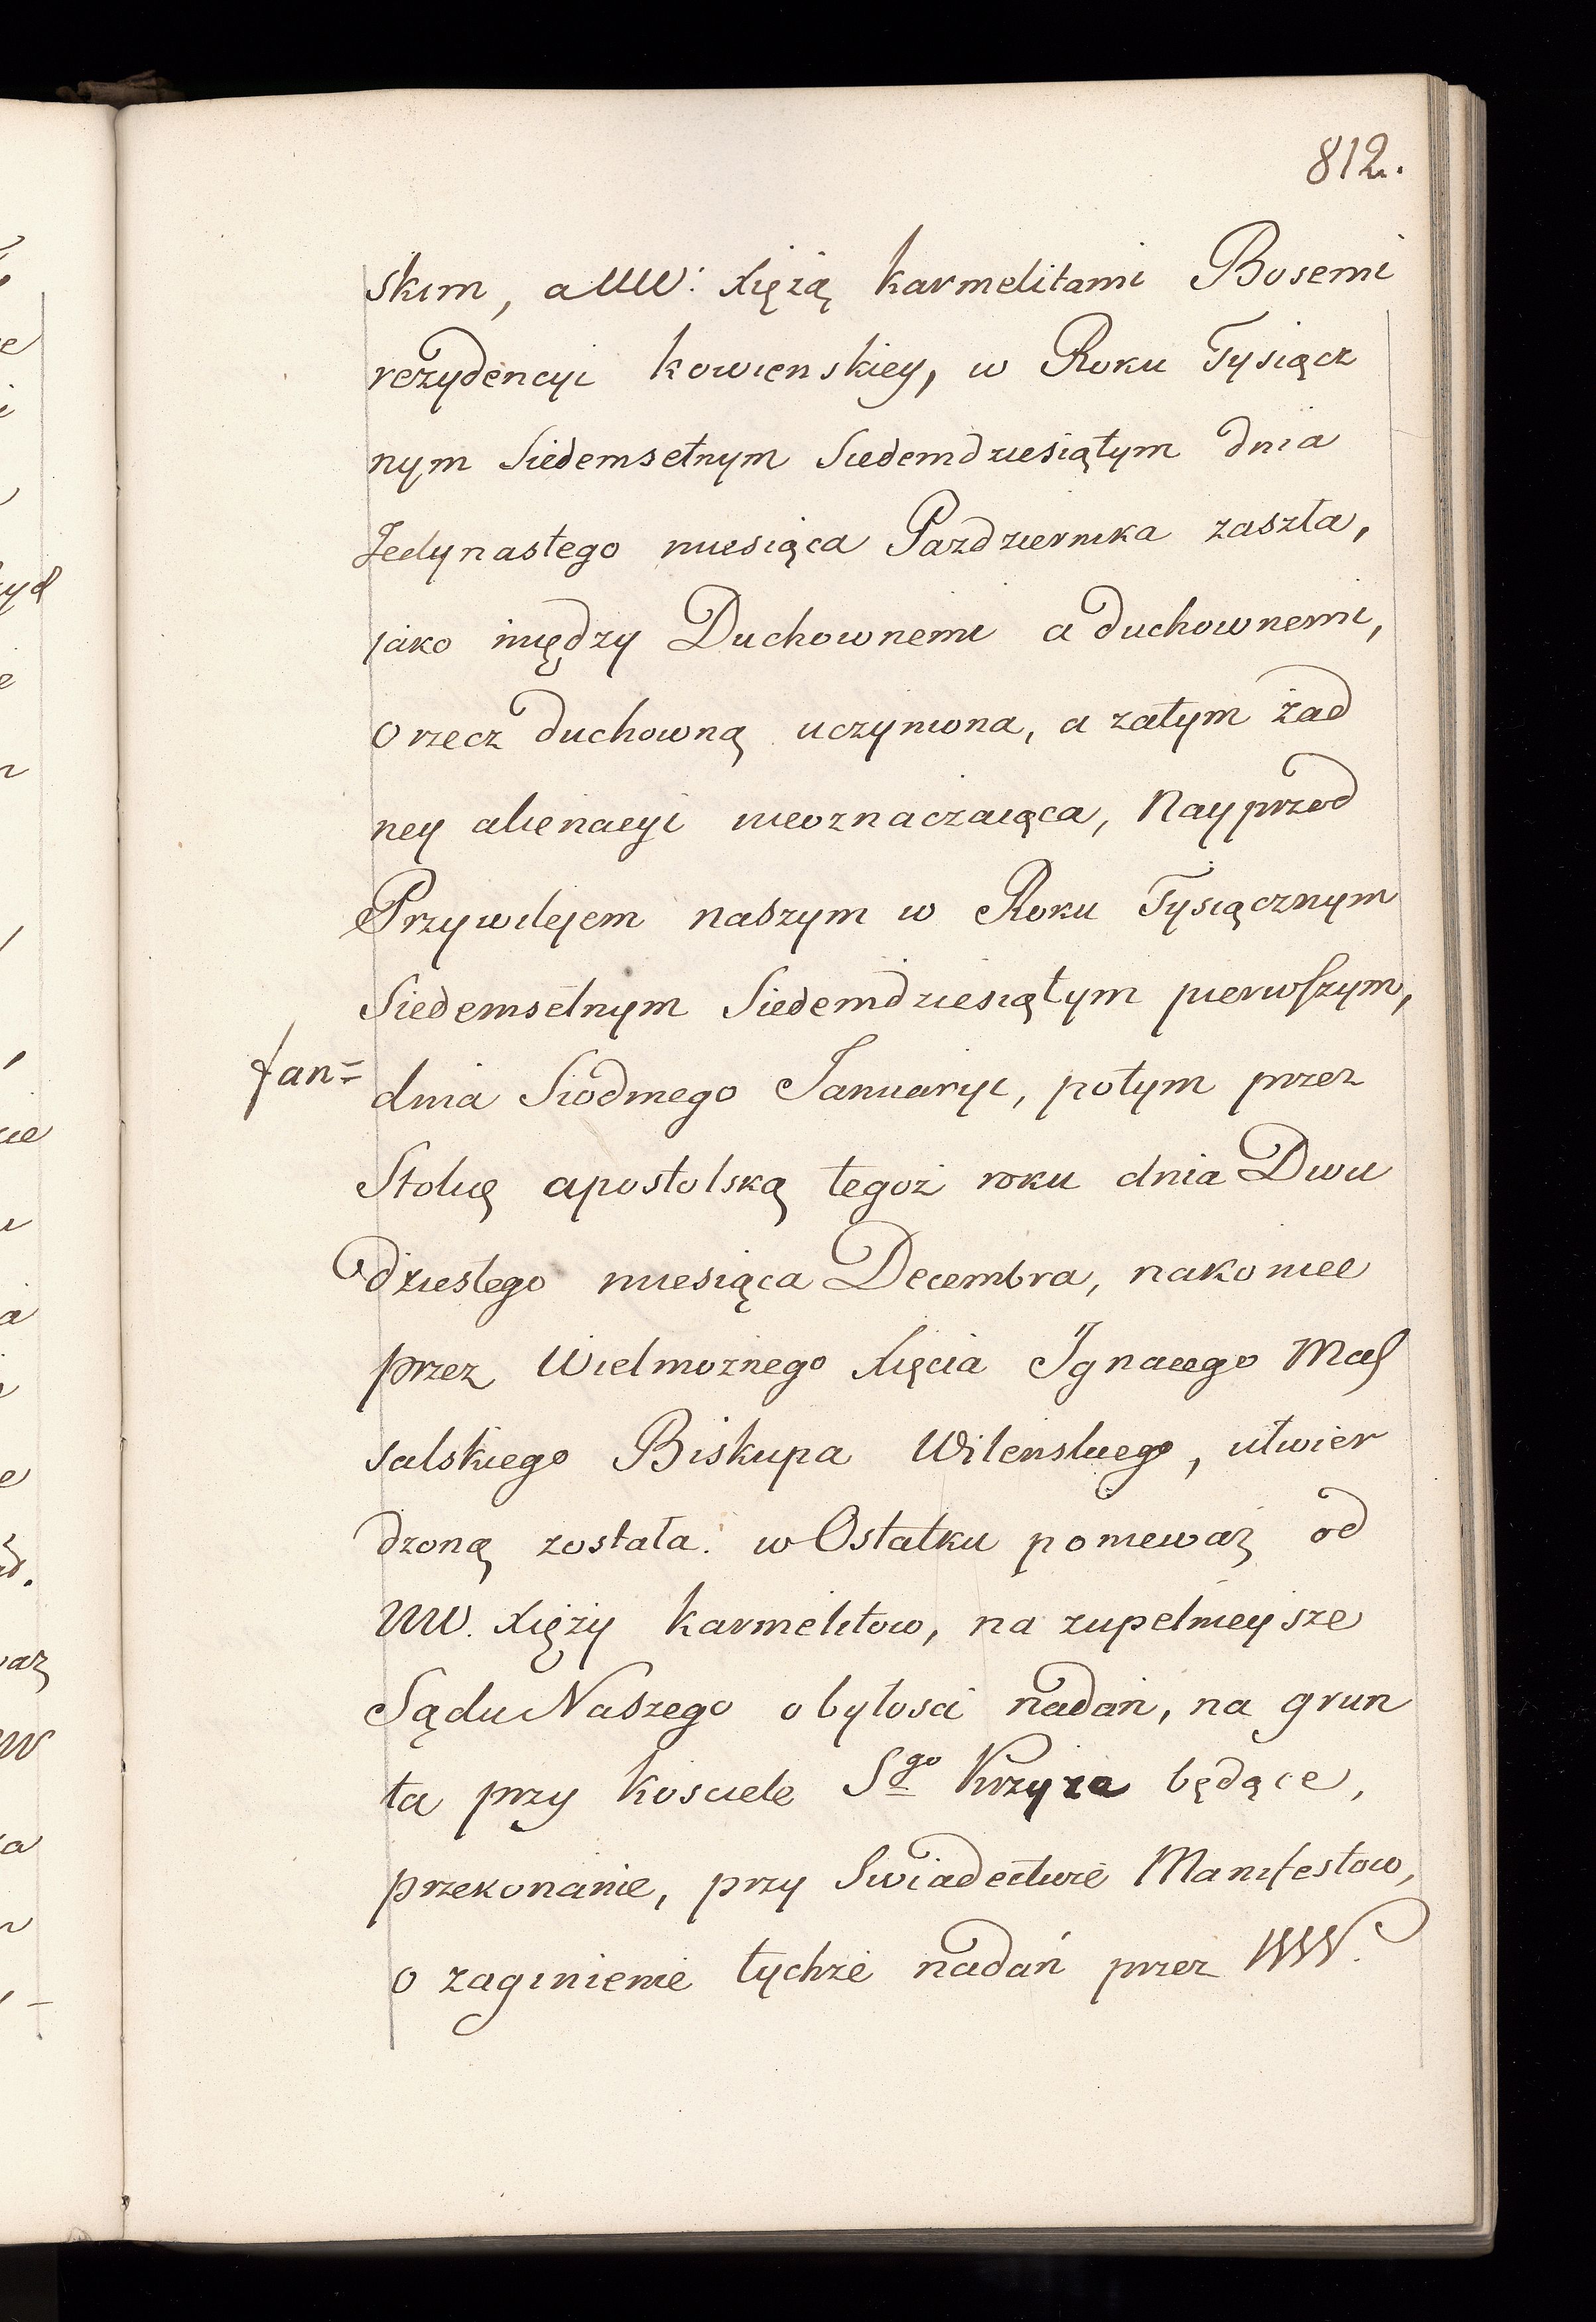 812.
skim, a WW: Xiężą karmelitami Bosemi
rezydencyi kowienskiey, w Roku Tysiącz
nym Siedemsetnym Siedemdziesiątym dnia
Jedynastego miesiąca Pazdziernika zaszła,
jako między Duchownemi a duchownemi,
o rzecz duchowną uczyniona, a zatym żad
ney alienacyi nieoznaczaiąca, Nayprzod
Przywilejem naszym w Roku Tysiącznym
Siedemsetnym Siedemdziesiątym pierwszym,
dnia Siodmego Januaryi, potym przez
Stolicę apostolską tegoż roku dnia Dwu
dziestego miesiąca Decembra, nakoniec
przez Wielmożnego Xięcia Ignacego Mas
salskiego Biskupa Wilenskiego, utwier
dzoną została. w Ostatku poniewaz od
WW. Xięży karmelitow, na zupelnieysze
Sądu Naszego o bytosci nadań, na grun
ta przy kosciele Sgo Krzyża będące,
przekonanie, przy Swiadectwie Manifestow,
o zaginienie tychże nadań przez WW.